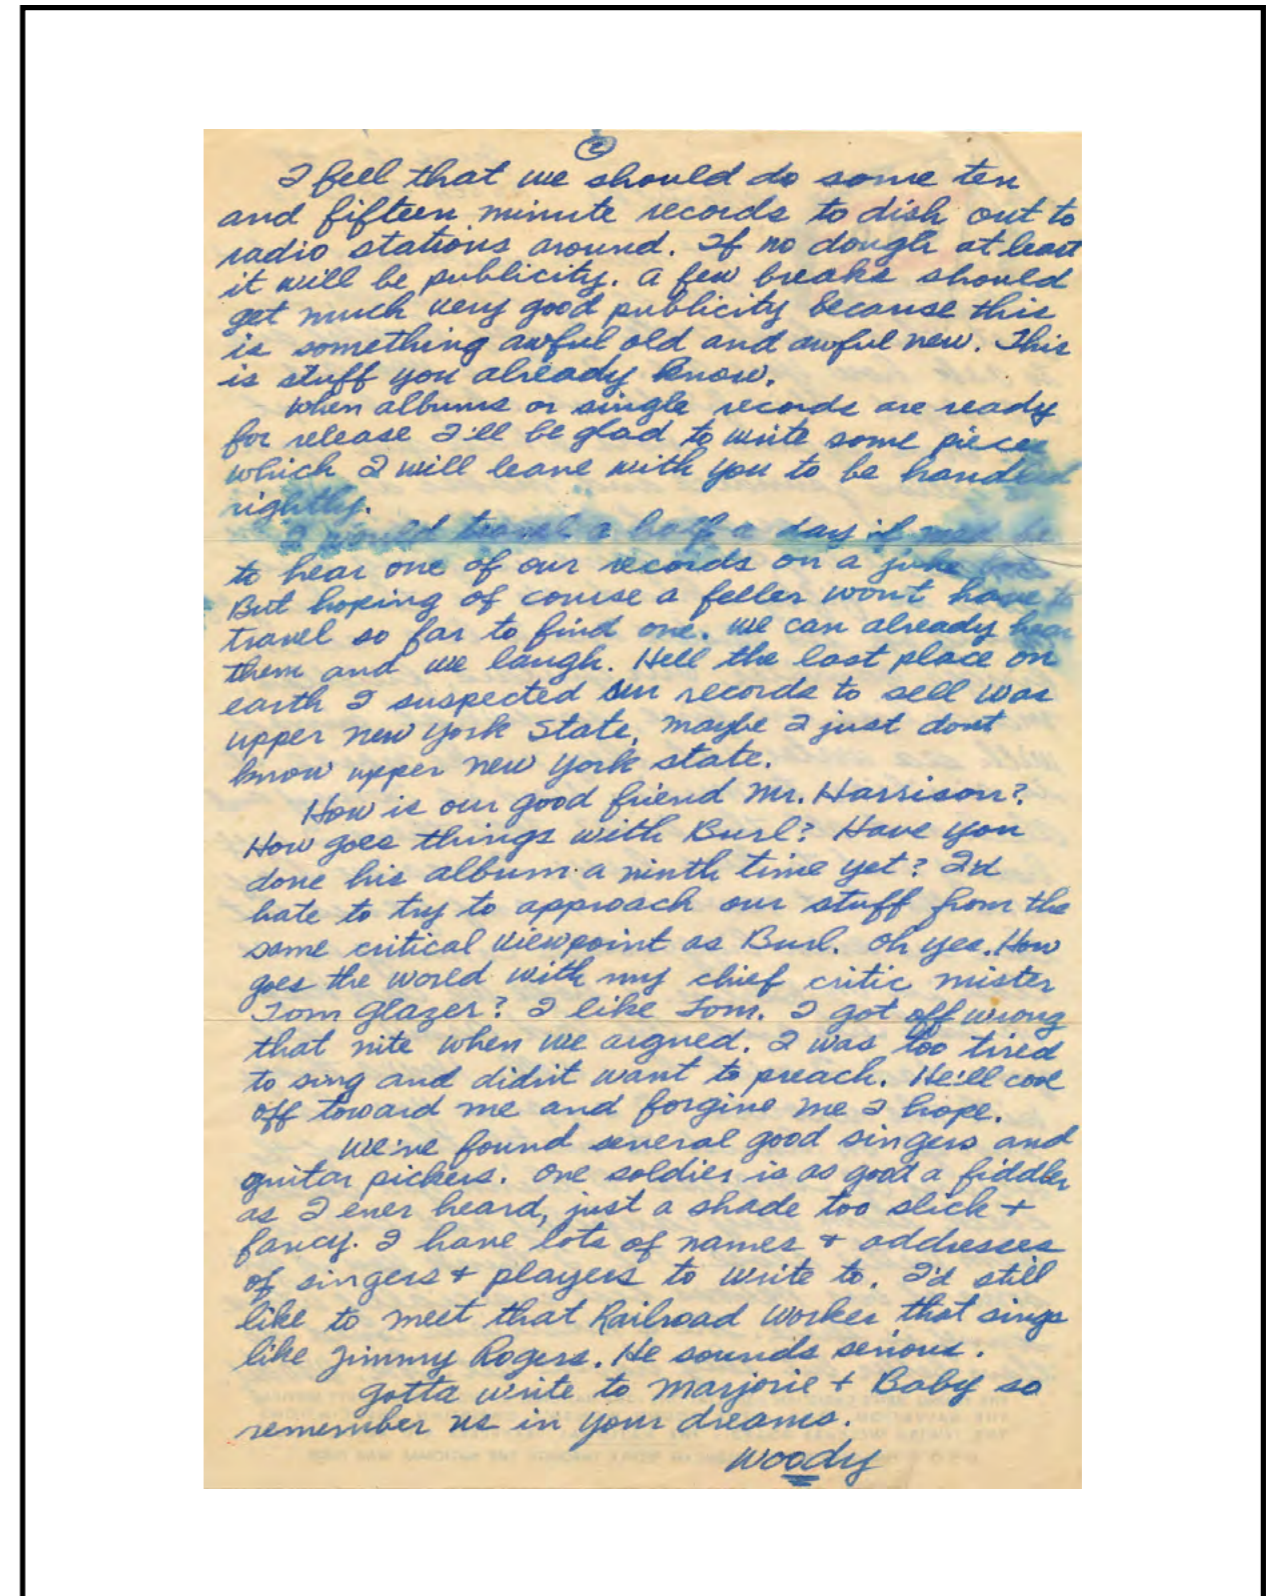 2
I feel that we should do some ten
and fifteen minute records to dish out to
radio stations around. If no dough at least
it will be publicity. A few breaks should
get much very good publicity because this
is something awful old and awful new. This
is stuff you already know.
When albums or single records are ready
for release I'll be glad to write some pieces
which I will leave with you to be handled
rightly.
I would travel a half a day if need be
to hear one of our records on a juke box
But hoping of course a feller wont have to
travel so far to find one. We can already hear
them and we laugh. Hell the last place on
earth I suspected our records to sell was
upper New York State, maybe I just dont
know upper New York state.
How is our good friend Mr. Harrison?
How goes things with Burl? Have you
done his album a ninth time yet? I'd
hate to try to approach our stuff from the
same critical viewpoint as Burl. Oh yes. How
goes the world with my chief critic mister
Tom Glazer? I like Tom. I got off wrong
that nite when we argued. I was too tired
to sing and didn't want to preach. He'll cool
off toward me and forgive me I hope.
We've found several good singers and
guitar pickers. One soldier is as good a fiddler
as I ever heard, just a shade too slick +
fancy. I have lots of names + addresses
of singers + players to write to. I'd still
like to meet that Railroad worker that sings
like Jimmy Rogers. He sounds serious.
Gotta write to Marjorie + Baby so
remember us in your dreams.
Woody